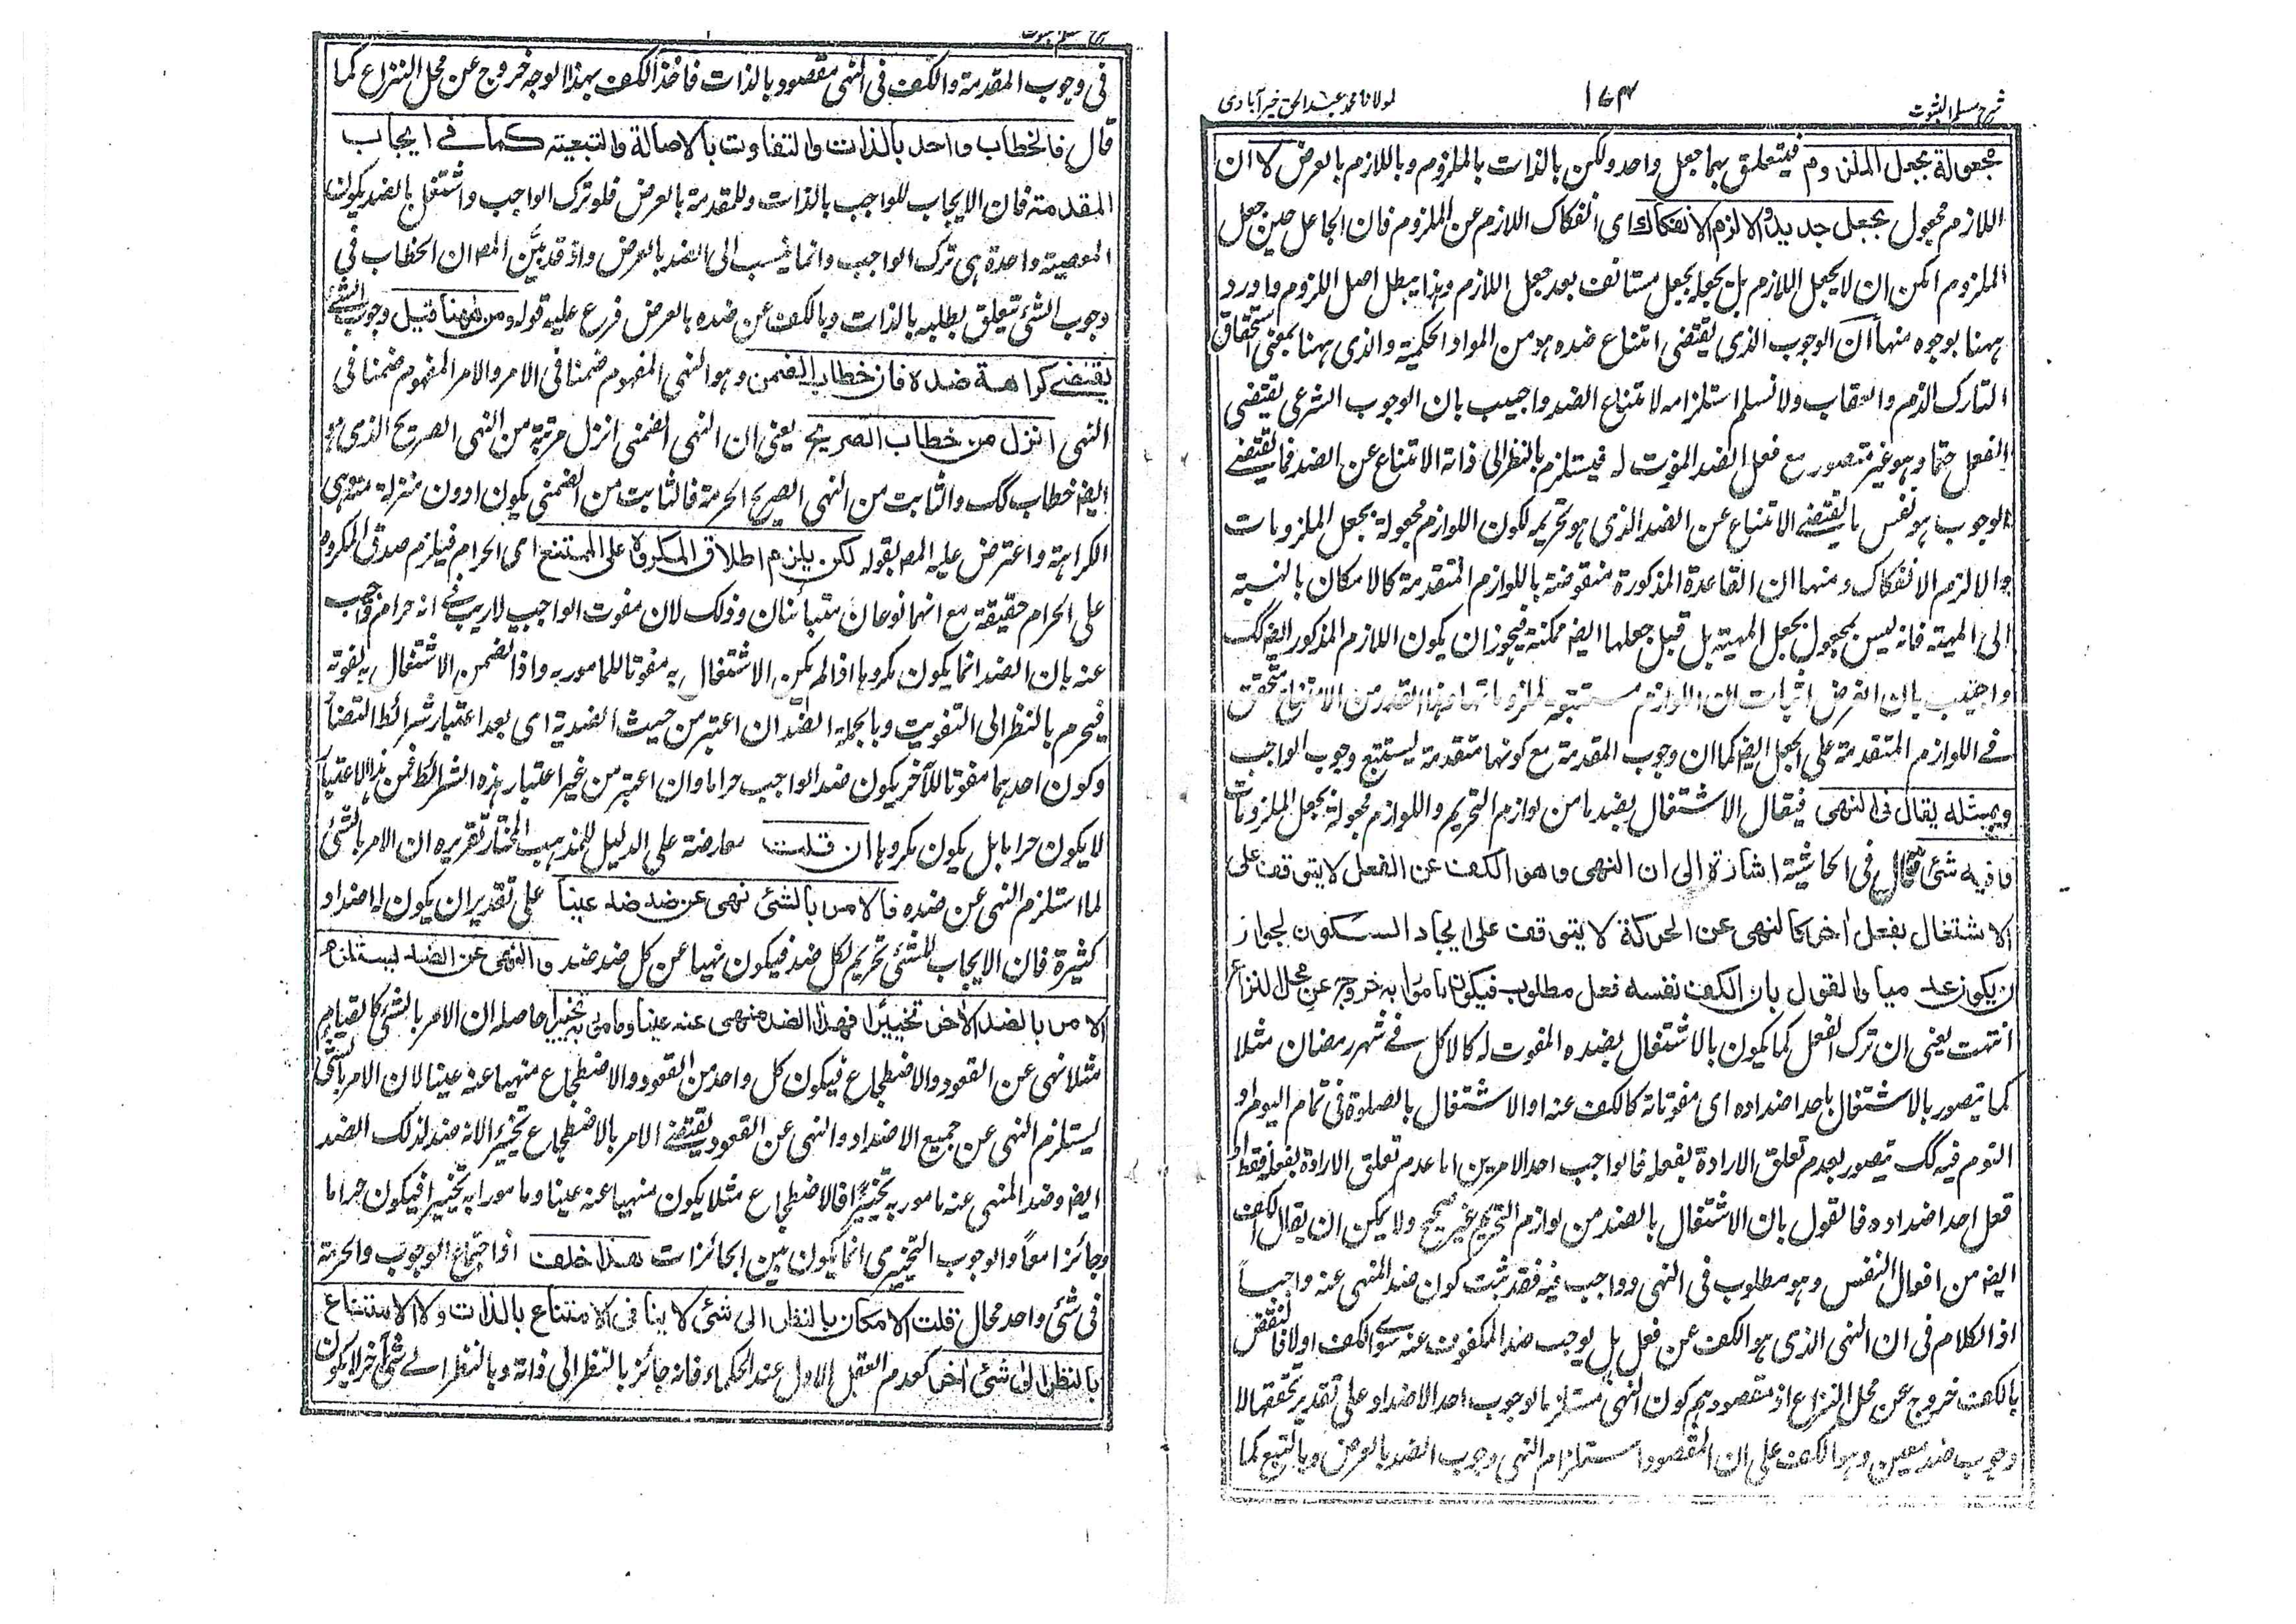 شرح مسلم الثبوت
۱۷۴
لمولانا محمد عبد الحق خیرآبادی
مجعولة بجعل الملزوم فيتعلق بهما جعل واحد ولكن بالذات بالملزوم وباللازم بالعرض لا ان
اللازم مجعول بجعل جديد والا لزم الانفكاك اى انفكاك اللازم عن الملزوم فان الجاعل حين جعل
الملزوم امكن ان لا يجعل اللازم بل يجعله بجعل مستانف بعد جعل اللازم وهذا يبطل اصل اللزوم واورد
ههنا بوجوه منها ان الوجوب الذى يقتضى امتناع ضده هو من المواد الحكمية والذى ههنا بمعنى استحقاق
التارك الذم والعقاب ولا نسلم استلزامه لامتناع الضد واجيب بان الوجوب الشرعى يقتضى
الفعل حتما وهو غير متصور مع فعل الضد المفوت له فيستلزم بالنظر الى ذاته الامتناع عن الضد فما يقتضى
الوجوب هو نفس ما يقتضى الامتناع عن الضد الذى هو تحريمه لكون اللوازم مجعولة بجعل الملزومات
والا لزم الانفكاك ومنها ان القاعدة المذكورة منقوضة باللوازم المتقدمة كالامكان بالنسبة
الى المهية فانه ليس بمجعول بجعل المهية بل قبل جعلها ايضا ممكنة فيجوز ان يكون اللازم المذكور ايضا كك
واجيب بان الغرض اثبات ان اللوازم مستتبعة لملزوماتها وهذا القدر من الامتناع متحقق
فى اللوازم المتقدمة على الجعل ايضا كما ان وجوب المقدمة مع كونها متقدمة يستتبع وجوب الواجب
وبمثله يقال فى النهى فيقال الاشتغال بضد ما من لوازم التحريم واللوازم مجعولة بجعل الملزومات
ما فيه شئ قال فى الحاشية اشارة الى ان النهى وهو الكف عن الفعل لا يتوقف على
الاشتغال بفعل اخر كالنهى عن الحركة لا يتوقف على ايجاد السكون لجواز
ان يكون عدميا والقول بان الكف نفسه فعل مطلوب فيكون مامورا به خروج عن محل النزاع
انتهت يعنى ان ترك الفعل كما يكون بالاشتغال بضده المفوت له كالاكل فى شهر رمضان مثلا
كما يتصور بالاشتغال باحد اضداده اى مفوتاته كالكف عنه او الاشتغال بالصلوة فى تمام اليوم او
النوم فيه كك يتصور بعدم تعلق الارادة بفعله فالواجب احد الامرين اما عدم تعلق الارادة بفعله فقط او
فعل احد اضداده فالقول بان الاشتغال بالضد من لوازم التحريم غير صحيح ولا يمكن ان يقال الكف
ايضا من افعال النفس وهو مطلوب فى النهى وواجب فيه فقد ثبت كون ضد المنهى عنه واجبا
اذ الكلام فى ان النهى الذى هو الكف عن فعل هل يوجب ضد المكفوف عنه سوى الكف اولا فالنقض
بالكف خروج عن محل النزاع اذ مقصودهم كون النهى مستلزما لوجوب احد الاضداد على تقدير تحققها لا
وجوب ضد معين وهو الكف على ان المقصود استلزام النهى وجوب الضد بالعرض وبالتبع كما
فى وجوب المقدمة والكف فى النهى مقصود بالذات فاخذ الكف بهذا الوجه خروج عن محل النزاع كما
قال فالخطاب واحد بالذات والتفاوت بالاصالة والتبعية كما فى ايجاب
المقدمة فان الايجاب للواجب بالذات وللمقدمة بالعرض فلو ترك الواجب واشتغل بالضد يكون
المعصية واحدة هى ترك الواجب وانما ينسب الى الضد بالعرض واذ قد بين المص ان الخطاب فى
وجوب الشئ تعلق بطلبه بالذات وبالكف عن ضده بالعرض فرع عليه قوله ومن ههنا قيل وجوب الشئ
يقتضى كراهة ضده فان خطاب الضمن وهو النهى المفهوم ضمنا فى الامر والامر المفهوم ضمنا فى
النهى انزل من خطاب الصريح يعنى ان النهى الضمنى انزل مرتبة من النهى الصريح الذى هو
ايضا خطاب كك والثابت من النهى الصريح الحرمة فالثابت من الضمنى يكون ادون منزلة منه وهى
الكراهة واعترض عليه المص بقوله لكن يلزم اطلاق المكروه على الممتنع اى الحرام فيلزم صدق المكروه
على الحرام حقيقة مع انهما نوعان متباينان وذلك لان مفوت الواجب لا ريب فى انه حرام واجيب
عنه بان الضد انما يكون مكروها اذا لم يكن الاشتغال به مفوتا للمامور به واذا تضمن الاشتغال به تفوته
فيحرم بالنظر الى التفويت وبالجملة الضد ان اعتبر من حيث الضدية اى بعد اعتبار شرائط التضاد
وكون احدهما مفوتا للآخر يكون ضد الواجب حراما وان اعتبر من غير اعتبار هذه الشرائط فمن هذا الاعتبار
لا يكون حراما بل يكون مكروها ان قلت معارضة على الدليل للمذهب المختار تقريره ان الامر بالشئ
لما استلزم النهى عن ضده فالامر بالشئ نهى عن ضد ضد عينا على تقدير ان يكون له اضداد
كثيرة فان الايجاب للشئ تحريم لكل ضد فيكون نهيا عن كل ضد ضد والنهى عن الضد يستلزم
الامر بالضد الاخر تخييرا فهذا الضد منهى عنه عينا ومامور به تخييرا حاصله ان الامر بالشئ كالقيام
مثلا نهى عن القعود والاضطجاع فيكون كل واحد من القعود والاضطجاع منهيا عنه عينا لان الامر بالشئ
يستلزم النهى عن جميع الاضداد والنهى عن القعود يقتضى الامر بالاضطجاع تخييرا لانه ضد لذلك الضد
ايضا وضد المنهى عنه مامور به تخييرا فالاضطجاع مثلا يكون منهيا عنه عينا ومامورا به تخييرا فيكون حراما
وجائزا معا والوجوب التخييرى انما يكون بين الجائزات هذا خلف اذ اجتماع الوجوب والحرمة
فى شئ واحد محال قلت الامكان بالنظر الى شئ لا ينافى الامتناع بالذات ولا الامتناع
بالنظر الى شئ اخر كعدم العقل الاول عند الحكماء فانه جائز بالنظر الى ذاته وبالنظر الى شئ آخر لا يكون